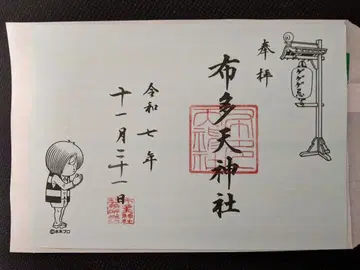 奉拝
布多天神社
令和七年
十一月二十一日
ゲゲゲの鬼太郎
©水木プロ